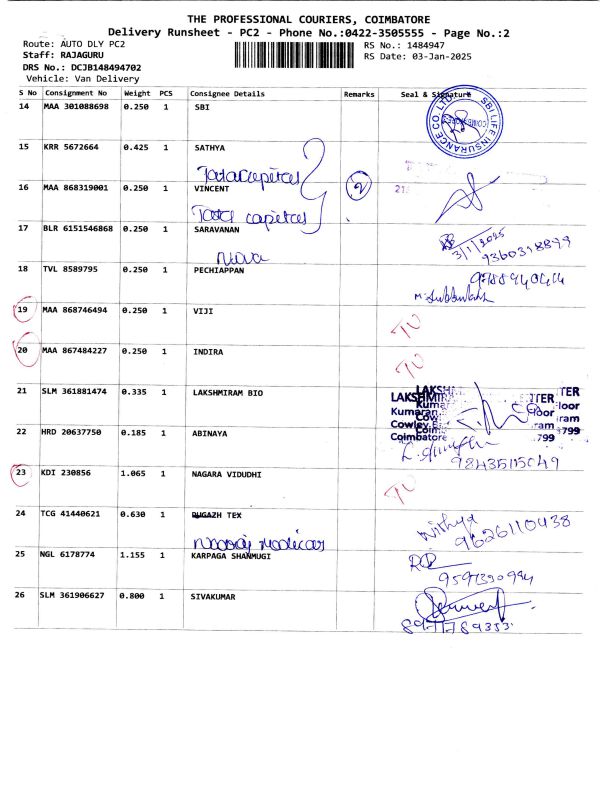 THE PROFESSIONAL COURIERS, COIMBATORE
Delivery Runsheet - PC2 - Phone No.:0422-3505555 - Page No.:2
Route: AUTO DLY PC2
RS No.: 1484947
Staff: RAJAGURU
RS Date: 03-Jan-2025
DRS No.: DCJB148494702
Vehicle: Van Delivery
S No Consignment No Weight PCS Consignee Details Remarks Seal & Signature
14 MAA 301088698 0.250 1 SBI
SBI LIFE INSURANCE CO. LTD
15 KRR 5672664 0.425 1 SATHYA
Tata Capital
16 MAA 868319001 0.250 1 VINCENT 2
Tata Capital
17 BLR 6151546868 0.250 1 SARAVANAN
3/1/2025
9360398899
Nova
18 TVL 8589795 0.250 1 PECHIAPPAN
19 MAA 868746494 0.250 1 VIJI
20 MAA 867484227 0.250 1 INDIRA
21 SLM 361881474 0.335 1 LAKSHMIRAM BIO
22 HRD 20637750 0.185 1 ABINAYA
9843515049
23 KDI 230856 1.065 1 NAGARA VIDUDHI
24 TCG 41440621 0.630 1 PUGAZH TEX
Nithya
9626110438
25 NGL 6178774 1.155 1 KARPAGA SHANMUGI
26 SLM 361906627 0.800 1 SIVAKUMAR